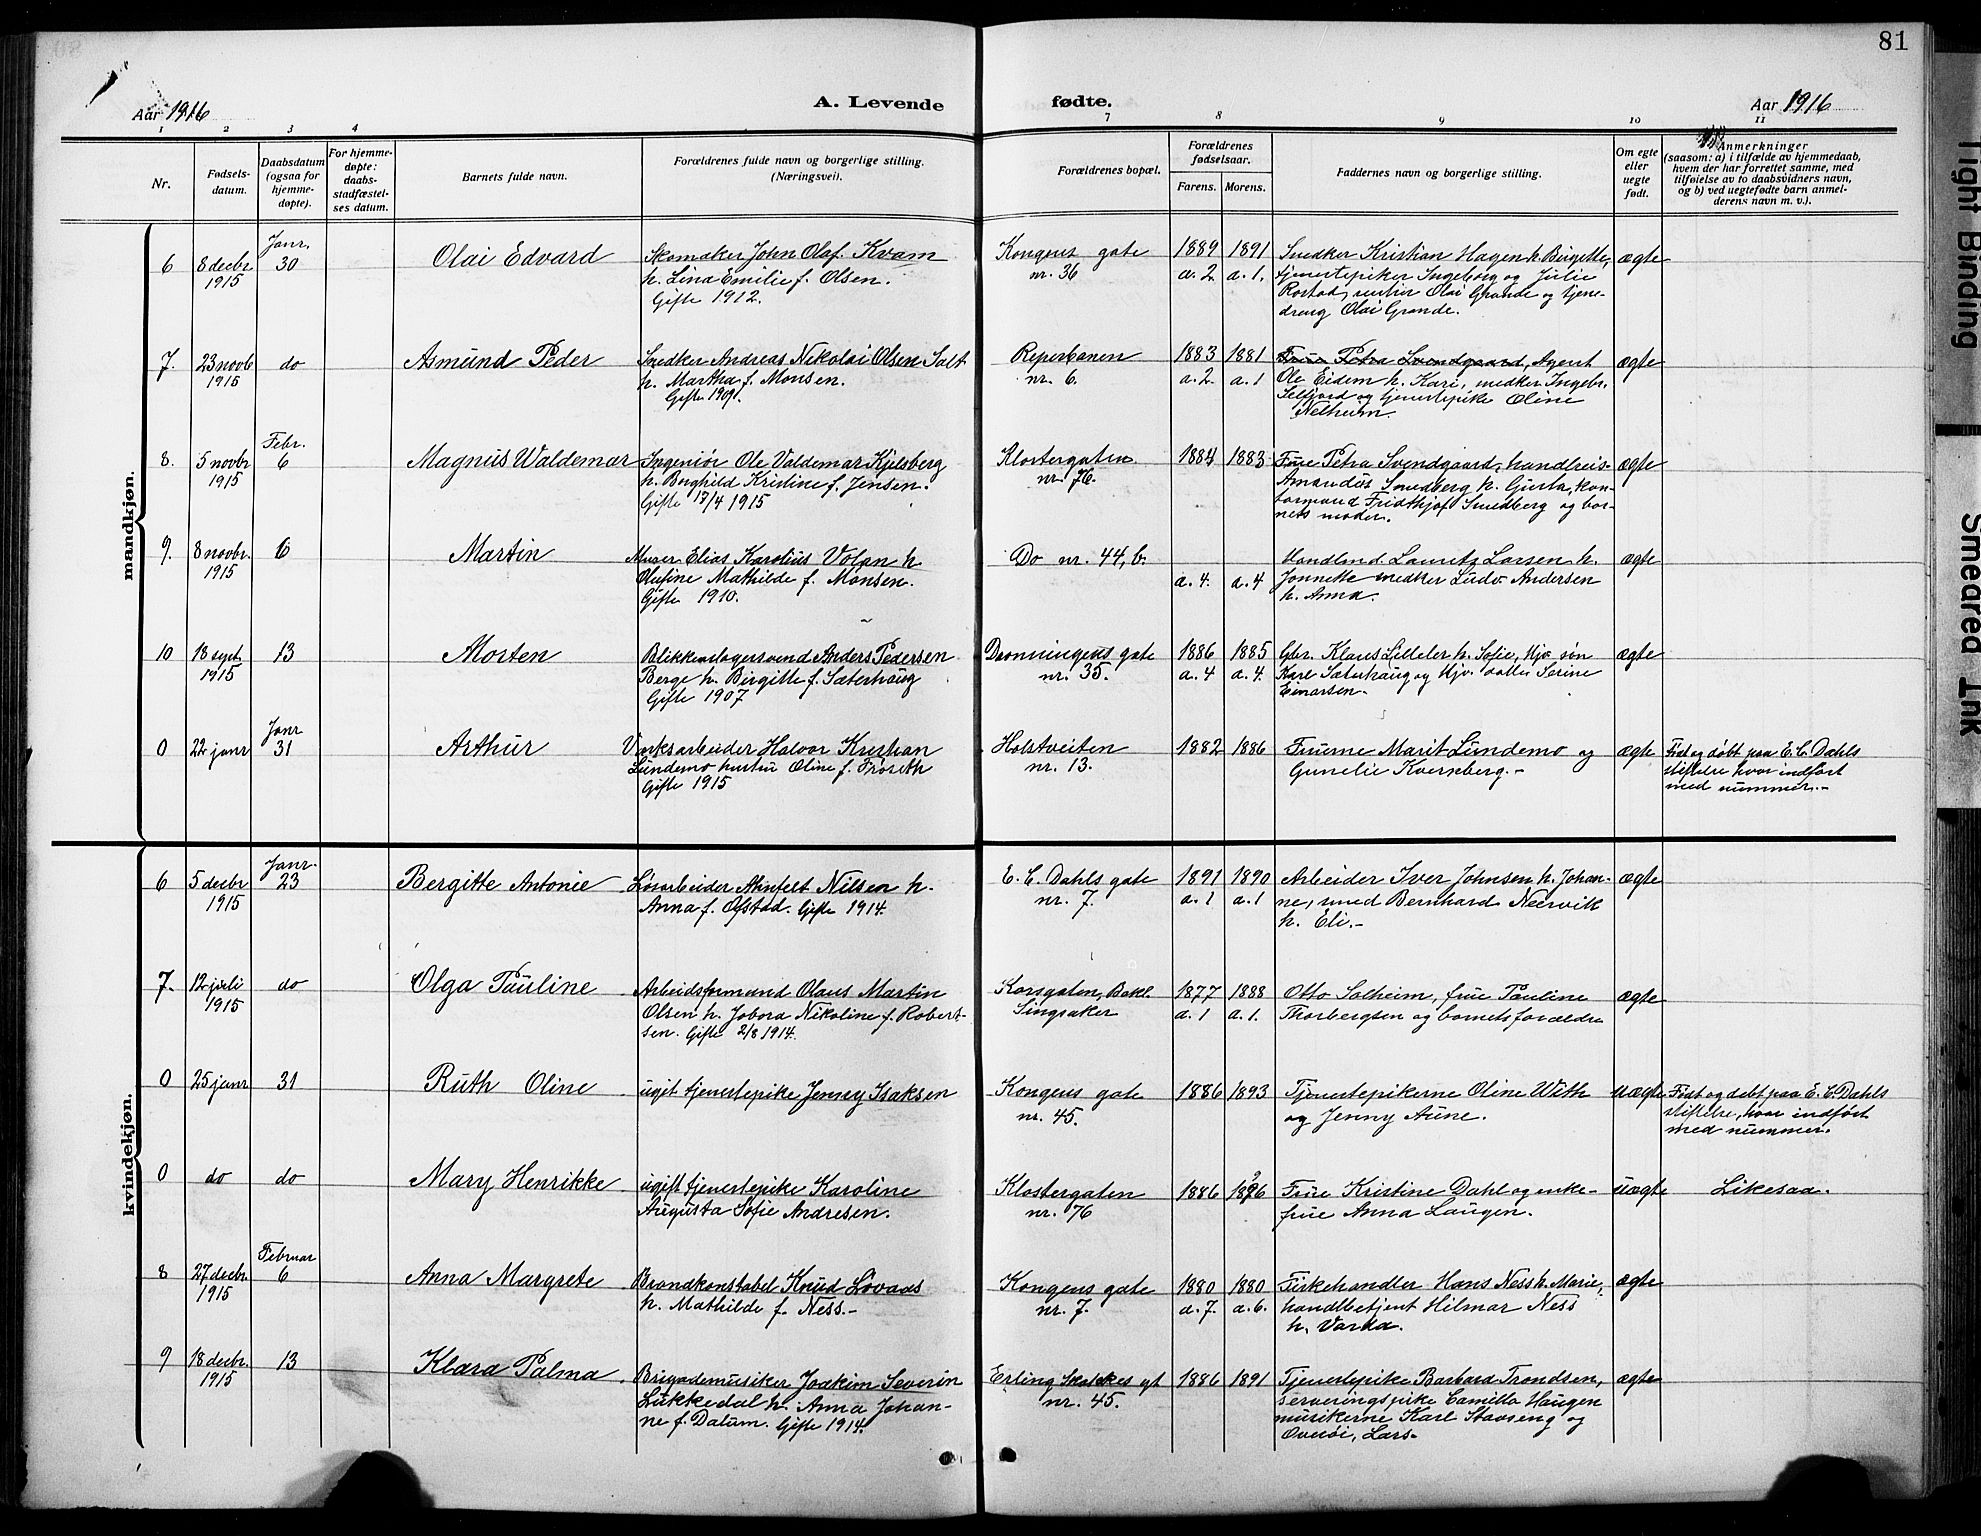 81
Aar 1916
A. Levende fødte.
Aar 1916
1 2 3 4 7 8 9 10 11
Nr.
Fødsels-
datum.
Daabsdatum
(ogsaa for
hjemme-
døpte).
For hjemme-
døpte:
daabs-
stadfæstel-
ses datum.
Barnets fulde navn.
Forældrenes fulde navn og borgerlige stilling.
(Næringsvei).
Forældrenes bopæl.
Forældrenes
fødselsaar.
Farens. Morens.
Faddernes navn og borgerlige stilling.
Om egte
eller
uegte
født.
Anmerkninger
(saasom: a) i tilfælde av hjemmedaab,
hvem der har forrettet samme, med
tilføielse av to daabsvidners navn,
og b) ved uegtefødte barn anmel-
derens navn m. v.).
mandkjøn.
6
8 decbr
1915
Janr.
30
Olai Edvard
Skomaker John Olaf Kvam
h. Lina Emilie f. Olsen.
Gifte 1912.
Kongens gate
nr. 36
1889 1891
a. 2 a. 1.
Snedker Kristian Hagen h. Birgitte,
tjenestepiker Ingeborg og Julie
Rostad, Olai Grande og tjene-
dreng Olai Grande.
ægte
7.
23 novb
1915
do
Asmund Peder
Snedker Andreas Nikolai Olsen Salt
h. Martha f. Monsen.
Gifte 1909.
Reperbanen
nr. 6.
1883 1881
a. 2. a. 1
Frue Petra Svendgaard, Agent
Ole Eidem h. Kari, snedker Ingebr.
Selfjord og tjenestepike Oline
Nelheim.
ægte
8.
5 novbr
1915
Febr.
6
Magnus Waldemar
Ingeniør Ole Valdemar Kjelsberg
h. Borghild Kristine f. Jensen.
Gifte 17/4 1915
Klostergaten
nr. 76.
1884 1883
Frue Petra Svendgaard, handlreis-
Amandus Smedberg h. Gusta, kon-
tormand Fridthjof Smedberg og bar-
nets moder.
ægte
9.
8 novbr.
1915
6
Martin
Murer Elias Karolius Volan h.
Olufine Mathilde f. Monsen.
Gifte 1910.
Do nr. 44, b.
a. 4. a. 4
Handlmd. Lauritz Larsen h.
Jonnette snedker Ludv. Andersen
h. Anna.
ægte
10
18 sept.
1915
13
Morten
Blikkenslagersvend Anders Pedersen
Berge h. Birgitte f. Sæterhaug
Gifte 1907
Dronningens gate
nr. 35.
1886 1885
a. 4 a. 4.
Gbr. Klaus Lilleler h. Sofie, Hjv. søn
Karl Sæterhaug og Hjv. datter Serine
Einarsen.
ægte
0
22 janr
Janr
31
Arthur
Verksarbeider Halvor Kristian
Lundemo hustru Oline f. Frøseth
Gifte 1915
Holstveiten
nr. 13.
1882 1886
Fruerne Marit Lundemo og
Gunelie Kverkberg.-
ægte
Født og døbt paa E. C. Dahls
stiftelse hvor indført
med nummer.-
kvindekjøn.
6
5 decbr
1915
Janr.
23
Bergitte Antonie
Løsarbeider Nilsen h.
Anna f. Ofstad. Gifte 1914.
E. C. Dahls gate
nr. 7.
1891 1890
a. 1 a. 1
Arbeider Iver Johnsen h. Johan-
ne, smed Bernhard Neervik
h. Eli.-
ægte
7.
12 juli
1915
do
Olga Pauline
Arbeidsformand Olaus Martin
Olsen h. Jobora Nikoline f. Robert-
sen. Gifte 2/8 1914.
Korsgaten, Bakl.
Singsaker
1877 1888
a. 1 a. 1.
Otto Solheim, frue Pauline
Thorbergsen og barnets forældre
ægte
0
25 janr
31
Ruth Oline
ugift tjenestepike Jenny Isaksen
Kongens gate
nr. 45.
1886 1893
Tjenestepikerne Oline With
og Jenny Aune.
uægte
Født og døbt paa E. C. Dahls
stiftelse, hvor indført
med nummer.
0
do
do
Mary Henrikke
ugift tjenestepike Karoline
Augusta Sofie Andresen.
Klostergaten
nr. 76
1886 1896
Frue Kristine Dahl og enke-
frue Anna Laugen.
uægte
Likesaa.
8
27 decbr.
1915
Februar
6
Anna Margrete
Brandkonstabel Knud Lovaas
h. Mathilde f. Ness.-
Kongens gate
nr. 7.
1880 1880
a. 7. a. 6.
Fiskehandler Hans Ness h. Marie,
handlbetjent Hilmar Ness
h. Varda.
ægte
9
18 decbr.
1915
13
Klara Palma
Brigademusiker Joakim Severin
Lukkedal h. Anna Johan-
ne f. Dalum. Gifte 1914.
Erling Skakkes gt
nr. 45.
1886 1891
Tjenestepike Barbara Trondsen,
serveringspike Camilla Haugen
musikerne Karl Stavseng og
Lars
ægte
Tight Binding
Smeared Ink